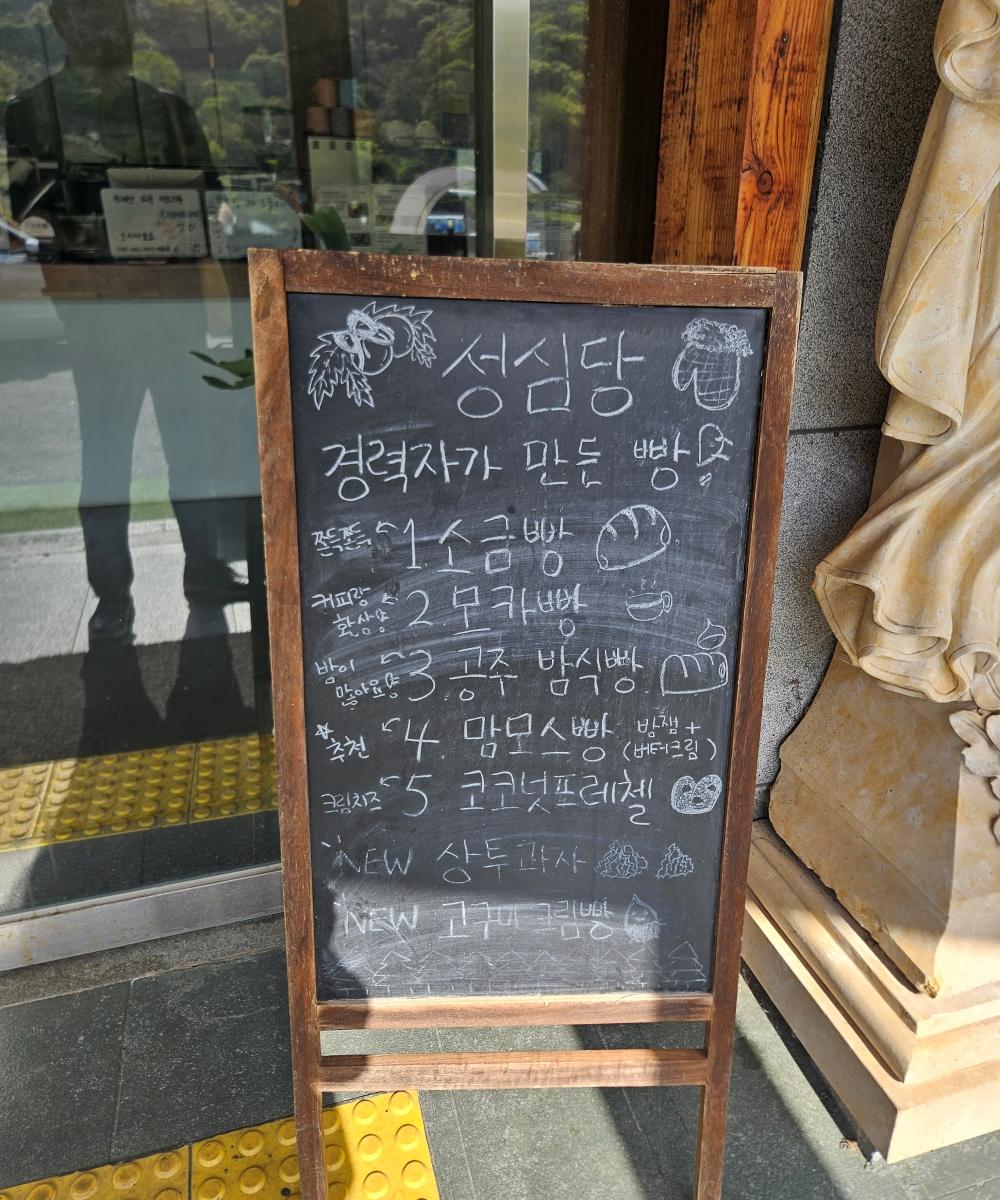 성심당
경력자가 만든 빵
쫀득쫀득 1. 소금빵
커피랑 환상용 2. 모카빵
밤이 많아요용 3. 공주 밤식빵
☆추천 4 맘모스빵 밤잼+ (버터크림)
크림치즈 5 코코넛프레첼
NEW 상투과자
NEW 고구마크림빵